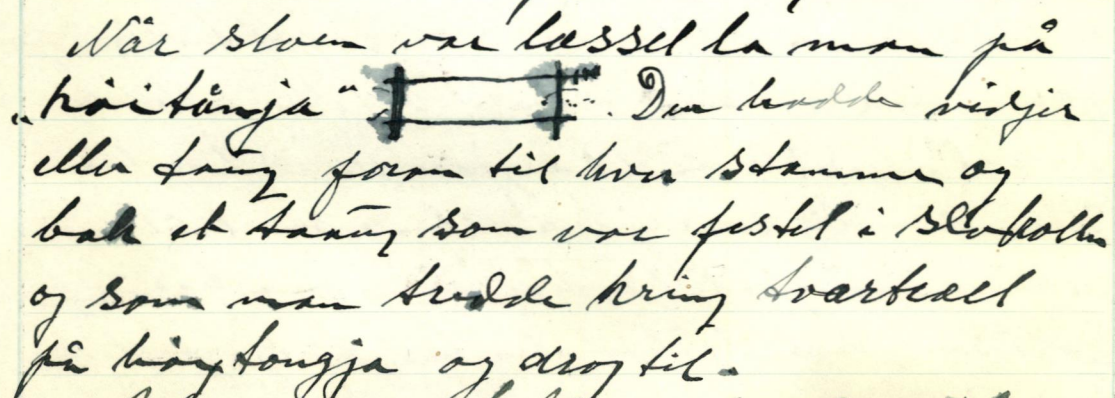 Når sloen var læsset la man på
„höitångja“. Den hadde vidjer
eller taug foran til hver stamme og
bak et taug som var festet i
og som man tredde kring tværtræet
på höytongja og drog til.